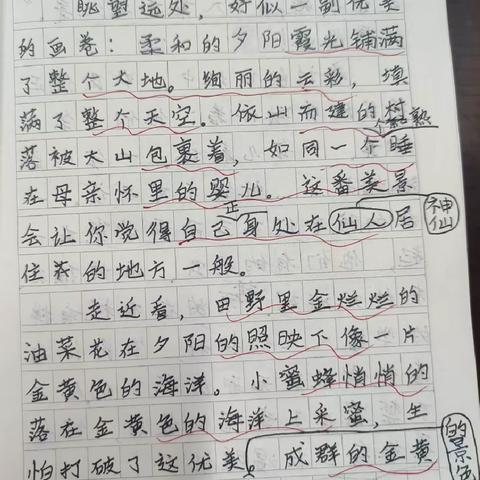 眺望远处，好似一副优美
的画卷：柔和的夕阳霞光铺满
了整个大地。绚丽的云彩，填
满了整个天空。依山而建的村
落被大山包裹着，如同一个个熟睡
在母亲怀里的婴儿。这番美景
会让你觉得自己正身处在仙人居
神仙
住在的地方一般。
走近看，田野里金烂烂的
油菜花在夕阳的照映下像一片
金黄色的海洋。小蜜蜂悄悄的
落在金黄色的海洋上采蜜，生
怕打破了这优美的景色。成群的金黄